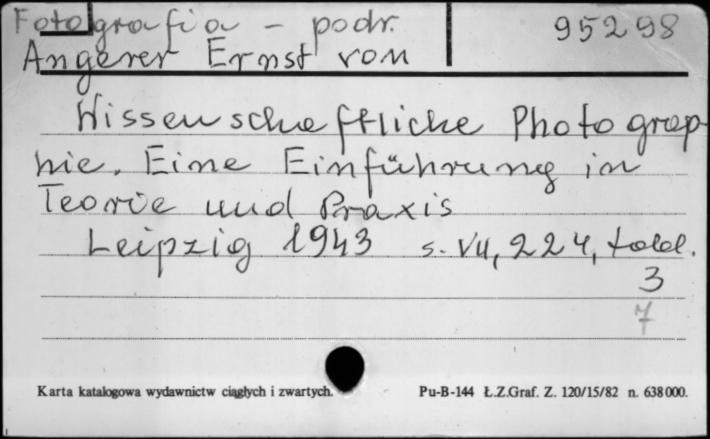 Fotografia - podr. 95298
Angerer Ernst von
Wissenschaftliche Photograp-
hie. Eine Einführung in
Teorie und Praxis
Leipzig 1943 s. VII, 224, tabl.
3
7
Karta katalogowa wydawnictw ciągłych i zwartych. Pu-B-144 Ł.Z.Graf. Z. 120/15/82 n. 638000.